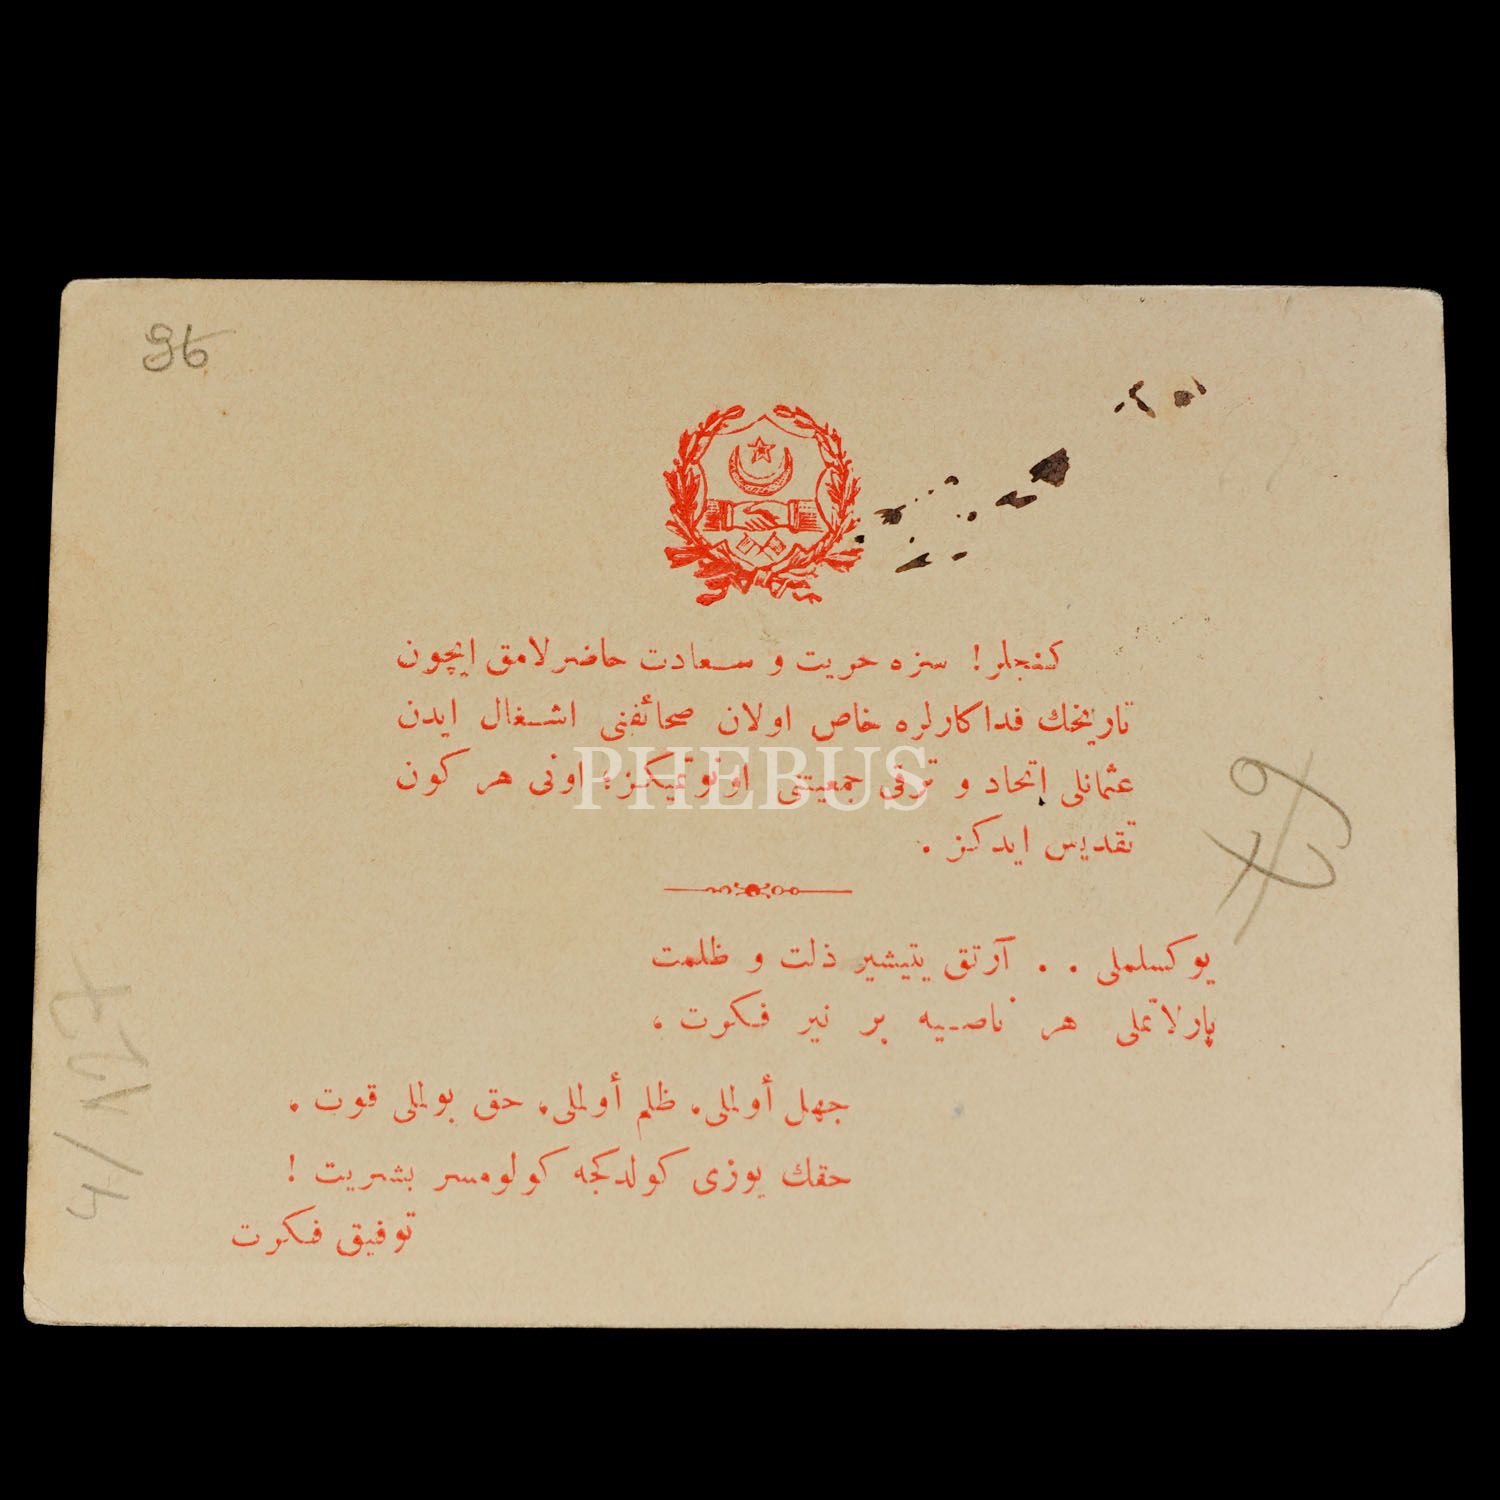 96
كنجلر! سزه حريت و سعادت حاضرلامق ايچون
تاريخك فداكارلره خاص اولان صحائفنى اشغال ايدن
عثمانلى اتحاد و ترقى جمعيتنى اونوتميكز؛ اونى هر كون
تقديس ايدكز .
PHEBUS
يوكسلملى . . آرتق يتيشير ذلت و ظلمت
پارلاتملى هر ناصيه بر نير فكرت ،
جهل أولملى. ظلم أولملى. حق بولملى قوت .
حقك يوزى كولدكجه كولومسر بشريت !
توفيق فكرت